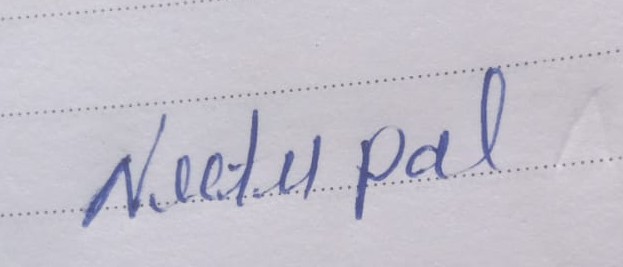 Neetu pal